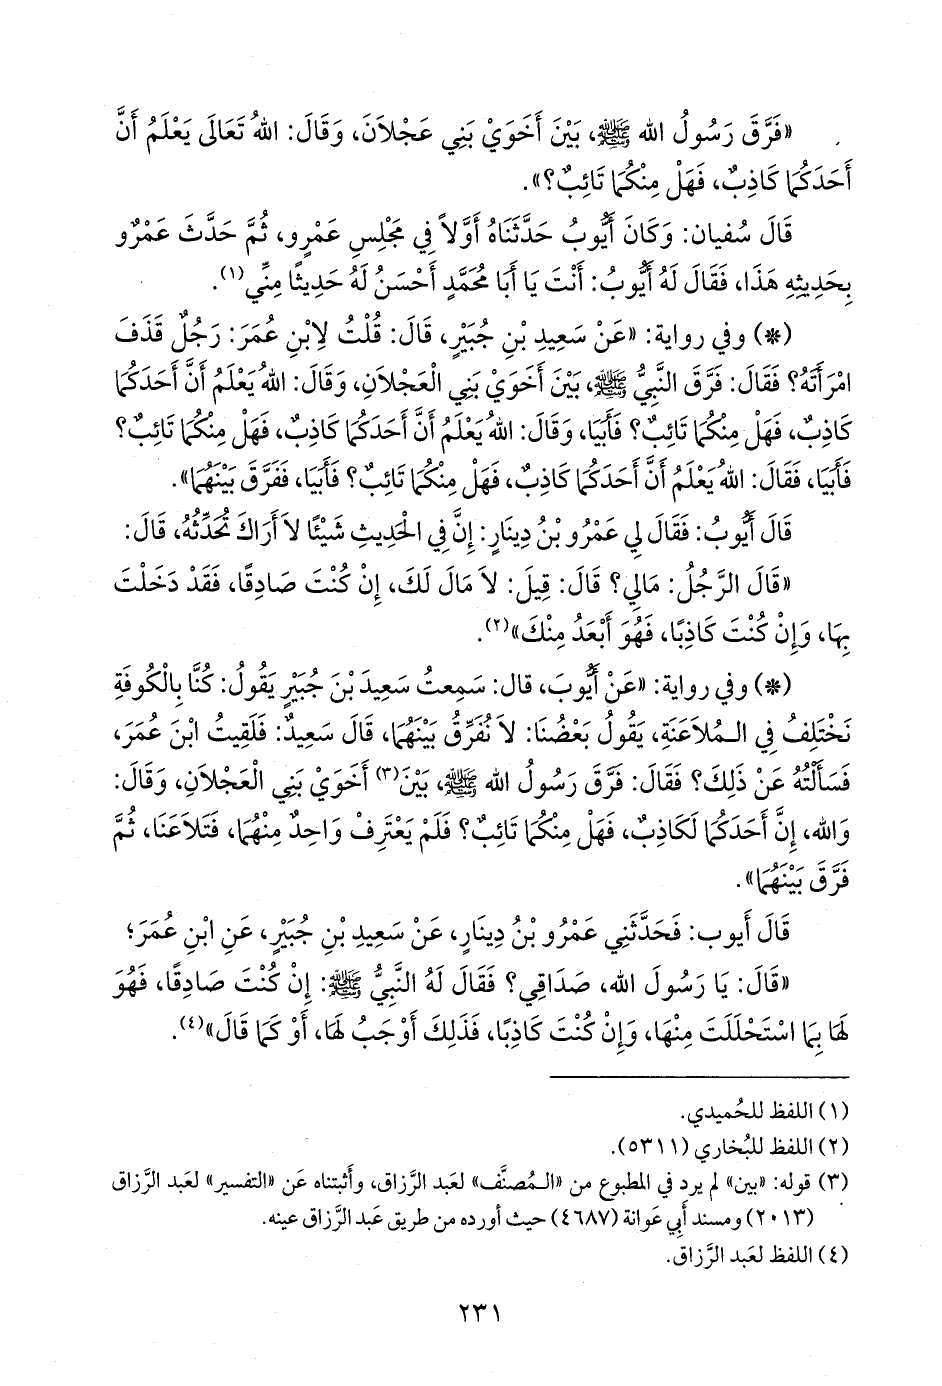 «فَرَّقَ رَسُولُ الله ﷺ، بَيْنَ أَخَوَيْ بَنِي عَجْلاَنَ، وَقَالَ: اللهُ تَعَالَى يَعْلَمُ أَنَّ
أَحَدَكُمَا كَاذِبٌ، فَهَلْ مِنْكُمَا تَائِبٌ؟».
قَالَ سُفيان: وَكَانَ أَيُّوبُ حَدَّثَنَاهُ أَوَّلاً فِي مَجْلِسِ عَمْرٍو، ثُمَّ حَدَّثَ عَمْرٌو
بِحَدِيثِهِ هَذَا، فَقَالَ لَهُ أَيُّوبُ: أَنْتَ يَا أَبَا مُحَمَّدٍ أَحْسَنُ لَهُ حَدِيثًا مِنِّي(١).
(*) وفي رواية: «عَنْ سَعِيدِ بْنِ جُبَيْرٍ، قَالَ: قُلْتُ لِابْنِ عُمَرَ: رَجُلٌ قَذَفَ
امْرَأَتَهُ؟ فَقَالَ: فَرَّقَ النَّبِيُّ ﷺ، بَيْنَ أَخَوَيْ بَنِي الْعَجْلاَنِ، وَقَالَ: اللهُ يَعْلَمُ أَنَّ أَحَدَكُمَا
كَاذِبٌ، فَهَلْ مِنْكُمَا تَائِبٌ؟ فَأَبَيَا، وَقَالَ: اللهُ يَعْلَمُ أَنَّ أَحَدَكُمَا كَاذِبٌ، فَهَلْ مِنْكُمَا تَائِبٌ؟
فَأَبَيَا، فَقَالَ: اللهُ يَعْلَمُ أَنَّ أَحَدَكُمَا كَاذِبٌ، فَهَلْ مِنْكُمَا تَائِبٌ؟ فَأَبَيَا، فَفَرَّقَ بَيْنَهُمَا».
قَالَ أَيُّوبُ: فَقَالَ لِي عَمْرُو بْنُ دِينَارٍ: إِنَّ فِي الْحَدِيثِ شَيْئًا لاَ أَرَاكَ تُحَدِّثُهُ، قَالَ:
«قَالَ الرَّجُلُ: مَالِي؟ قَالَ: قِيلَ: لاَ مَالَ لَكَ، إِنْ كُنْتَ صَادِقًا، فَقَدْ دَخَلْتَ
بِهَا، وَإِنْ كُنْتَ كَاذِبًا، فَهُوَ أَبْعَدُ مِنْكَ»(٢).
(*) وفي رواية: «عَنْ أَيُّوبَ، قال: سَمِعتُ سَعِيدَ بْنَ جُبَيْرٍ يَقُولُ: كُنَّا بِالْكُوفَةِ
نَخْتَلِفُ فِي الـمُلاَعَنَةِ، يَقُولُ بَعْضُنَا: لاَ نُفَرِّقُ بَيْنَهُمَا، قَالَ سَعِيدٌ: فَلَقِيتُ ابْنَ عُمَرَ،
فَسَأَلْتُهُ عَنْ ذَلِكَ؟ فَقَالَ: فَرَّقَ رَسُولُ الله ﷺ، بَيْنَ(٣) أَخَوَيْ بَنِي الْعَجْلاَنِ، وَقَالَ:
وَالله، إِنَّ أَحَدَكُمَا لَكَاذِبٌ، فَهَلْ مِنْكُمَا تَائِبٌ؟ فَلَمْ يَعْتَرِفْ وَاحِدٌ مِنْهُمَا، فَتَلاَعَنَا، ثُمَّ
فَرَّقَ بَيْنَهُمَا».
قَالَ أَيوب: فَحَدَّثَنِي عَمْرُو بْنُ دِينَارٍ، عَنْ سَعِيدِ بْنِ جُبَيْرٍ، عَنِ ابْنِ عُمَرَ؛
«قَالَ: يَا رَسُولَ الله، صَدَاقِي؟ فَقَالَ لَهُ النَّبِيُّ ﷺ: إِنْ كُنْتَ صَادِقًا، فَهُوَ
لَهَا بِمَا اسْتَحْلَلْتَ مِنْهَا، وَإِنْ كُنْتَ كَاذِبًا، فَذَلِكَ أَوْجَبُ لَهَا، أَوْ كَمَا قَالَ»(٤).
(١) اللفظ للحُميدي.
(٢) اللفظ للبُخاري (٥٣١١).
(٣) قوله: «بين» لم يرد في المطبوع من «الـمُصنَّف» لعَبد الرَّزاق، وأثبتناه عَن «التفسير» لعَبد الرَّزاق
(٢٠١٣) ومسند أَبِي عَوانة (٤٦٨٧) حيث أورده من طريق عَبد الرَّزاق عينه.
(٤) اللفظ لعَبد الرَّزاق.
٢٣١